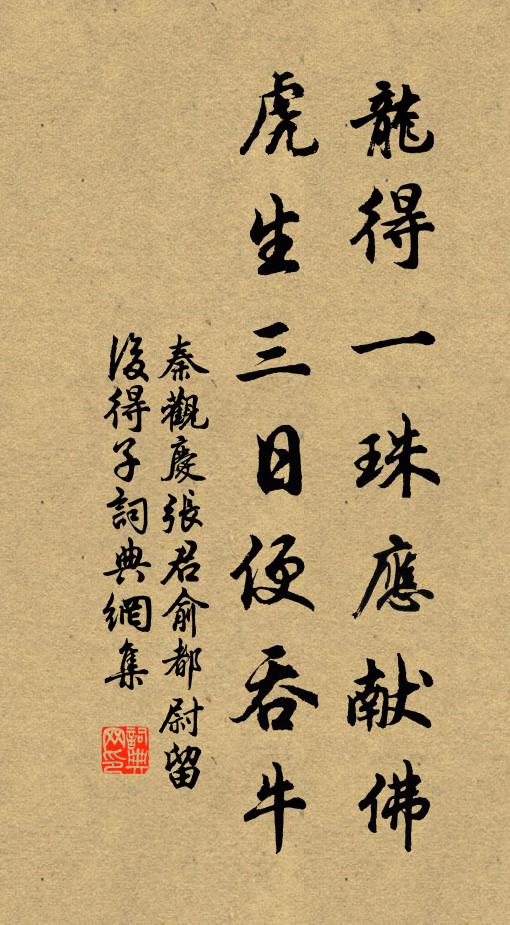 龍得一珠應献佛
虎生三日便吞牛
秦觀慶張君俞都尉留
後得子詞典網集
詞典網印